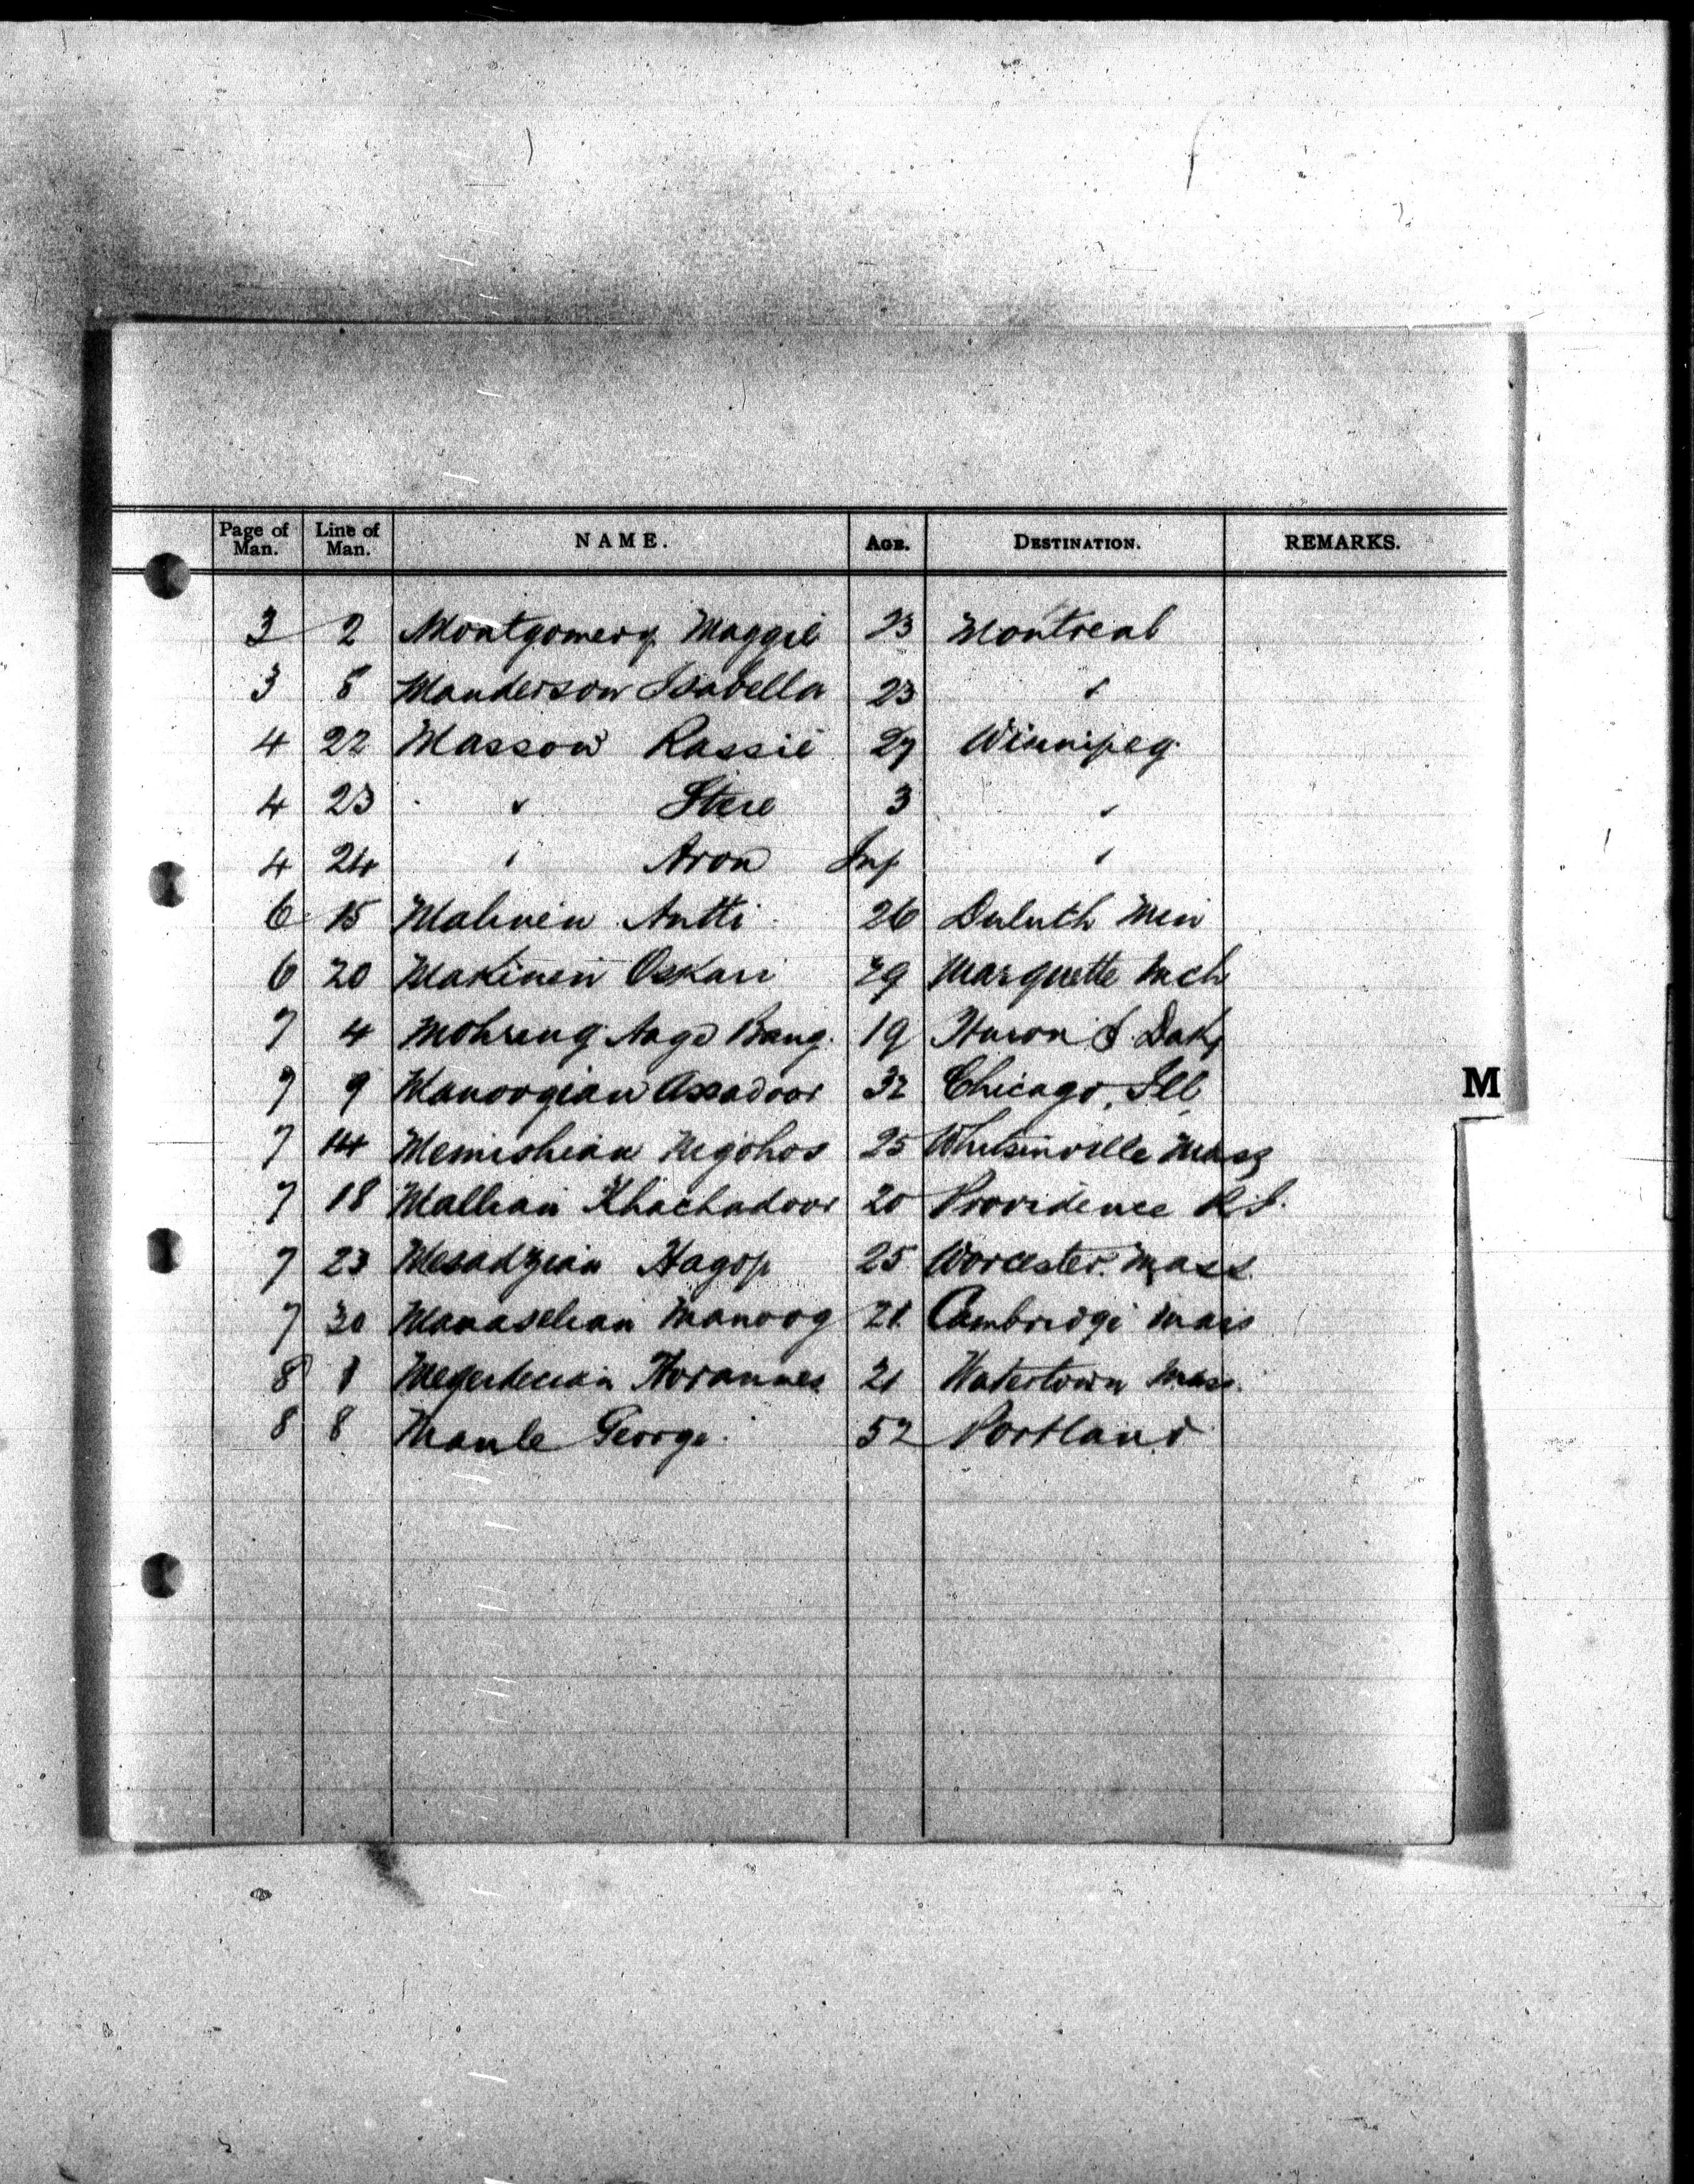 Page of Man. Line of Man. NAME. AGE. DESTINATION. REMARKS.
3 2 Montgomery Maggie 23 Montreal
3 8 Manderson Isabella 23 "
4 22 Masson Rassie 27 Winnipeg
4 23 " 3 "
4 24 " Aron Inf "
6 15 Antti 26 Duluth Min
6 20 Makinen Oskari 29 Marquette Mch
7 4 Mohreng Aage Bang. 19 Huron S. Dak,
7 9 Manoogian Assadoor 32 Chicago, Ill,
M
7 14 Memishian Nigohos 25 Whitinsville Mass
7 18 Malhian Khachadoor 20 Providence R.I.
7 23 Mesadzian Hagop 25 Worcester. Mass.
7 30 Manoog 21 Cambridge Mass
8 1 Hovannes 21 Watertown Mass.
8 8 Maule George. 52 Portland